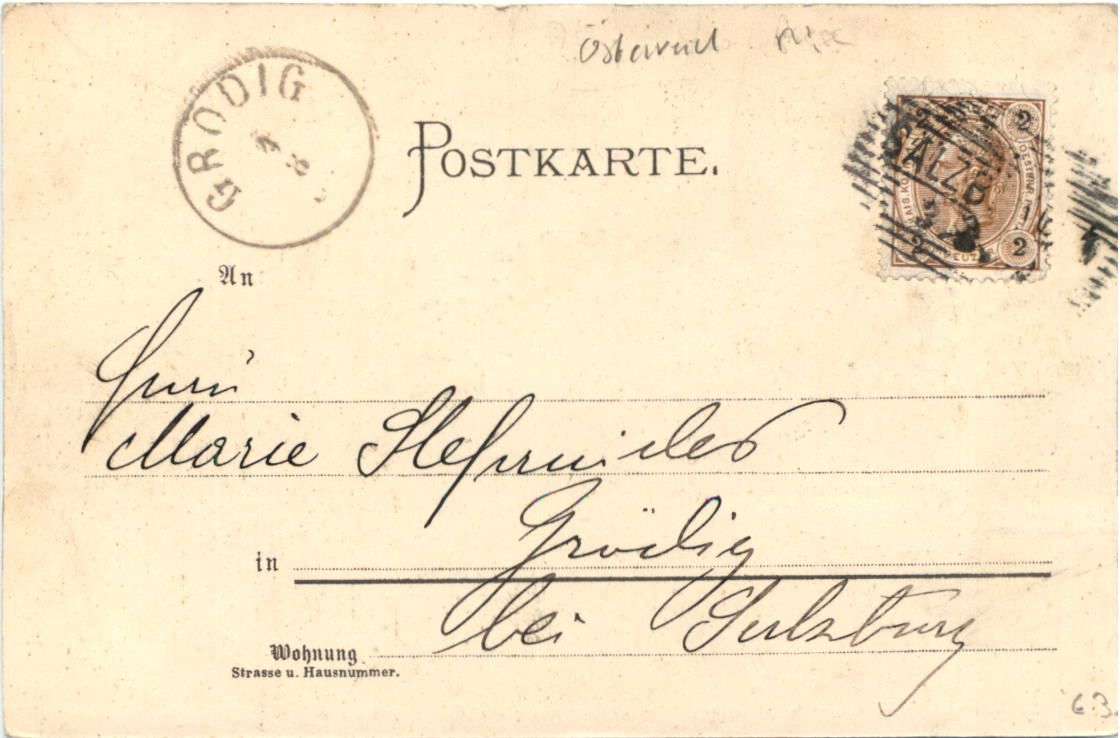 Österreich
GRÖDIG
4 8
POSTKARTE.
SALZB
2 2
2 2
An
Marie
Grödig
in
bei Salzburg
Wohnung
Strasse u. Hausnummer.
63.